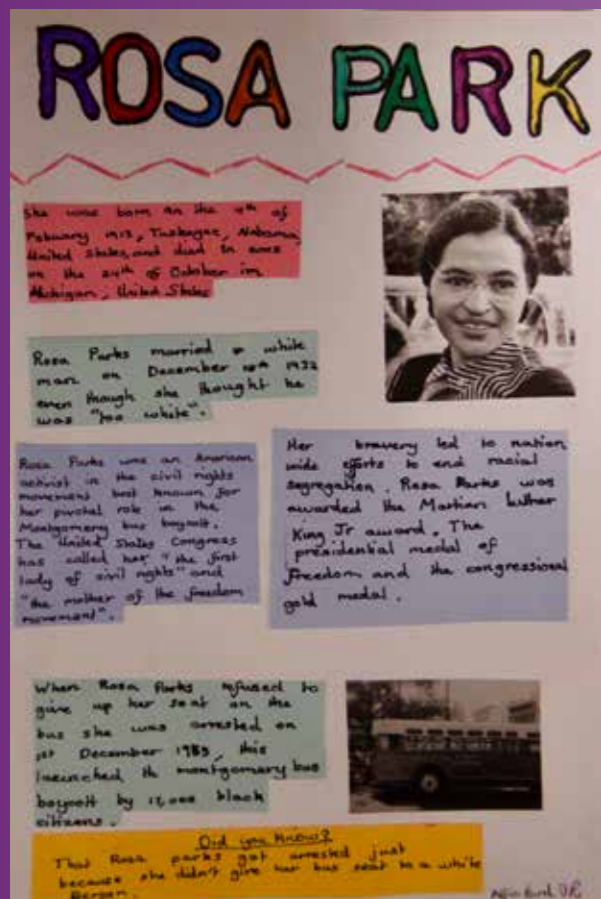 ROSA PARK
She was born on the 4th of
February 1913, Tuskegee, Alabama,
United States, and died in 2005
on the 24th of October in
Michigan, United States
Rosa Parks married a white
man on December 18th 1932
even though she thought he
was "too white".
Rosa Parks was an American
activist in the civil rights
movement best known for
her pivotal role in the
Montgomery bus boycott.
The United States Congress
has called her "the first
lady of civil rights" and
"the mother of the freedom
movement".
Her bravery led to nation
wide efforts to end racial
segregation. Rosa Parks was
awarded the Martian luther
King Jr award, The
presidential medal of
freedom and the congressional
gold medal.
When Rosa Parks refused to
give up her seat on the
bus she was arrested on
1st December, this
launched th montgomery bus
boycott by 17,000 black
citizens.
Did you know?
That Rosa parks got arrested just
because she didn't give her bus seat to a white
person.